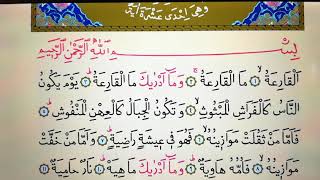 وَهِيَ اِحْدٰى عَشْرَةَ اٰيَةً
بِسْمِ اللّٰهِ الرَّحْمٰنِ الرَّحِيمِ
اَلْقَارِعَةُۙ ﴿١﴾ مَا الْقَارِعَةُۚ ﴿٢﴾ وَمَٓا اَدْرٰيكَ مَا الْقَارِعَةُۜ ﴿٣﴾ يَوْمَ يَكُونُ
النَّاسُ كَالْفَرَاشِ الْمَبْثُوثِۙ ﴿٤﴾ وَتَكُونُ الْجِبَالُ كَالْعِهْنِ الْمَنْفُوشِۜ ﴿٥﴾
فَاَمَّا مَنْ ثَقُلَتْ مَوَازٖينُهُۙ ﴿٦﴾ فَهُوَ فٖي عٖيشَةٍ رَاضِيَةٍۜ ﴿٧﴾ وَاَمَّا مَنْ خَفَّتْ
مَوَازٖينُهُۙ ﴿٨﴾ فَاُمُّهُ هَاوِيَةٌۜ ﴿٩﴾ وَمَٓا اَدْرٰيكَ مَاهِيَهْۜ ﴿١٠﴾ نَارٌ حَامِيَةٌ ﴿١١﴾